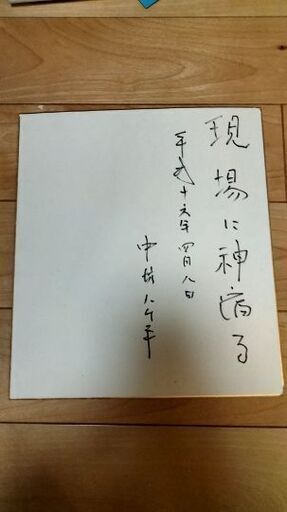 現場に神宿る
平成十六年四月八日
中坊公平